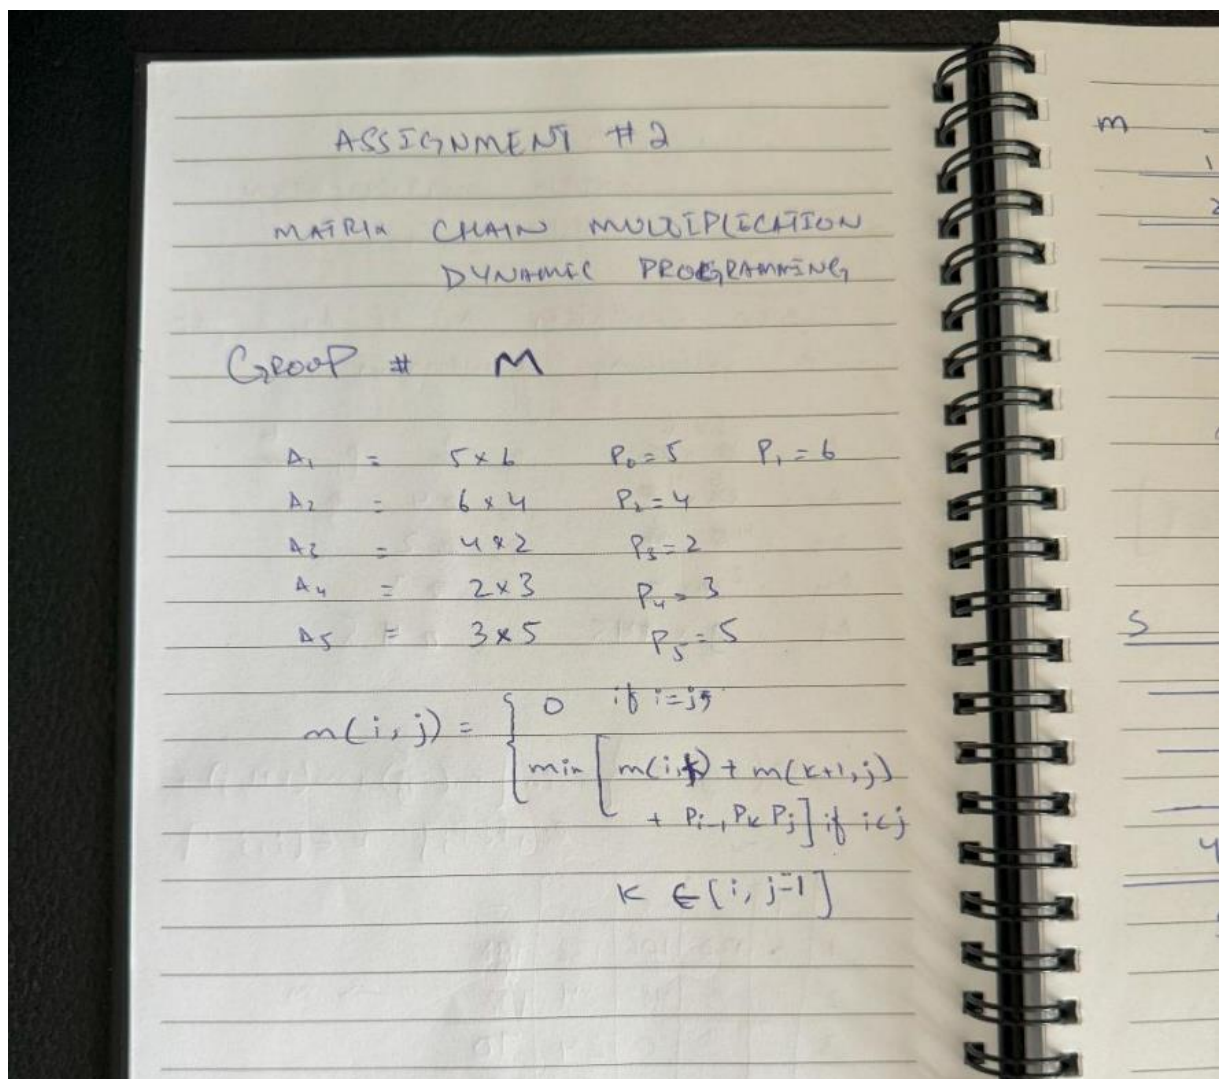 ASSIGNMENT #2
MATRIX CHAIN MULTIPLICATION
DYNAMIC PROGRAMMING
GROUP # M
A₁ = 5×6 P₀=5 P₁=6
A₂ = 6×4 P₂=4
A₃ = 4×2 P₃=2
A₄ = 2×3 P₄=3
A₅ = 3×5 P₅=5
m(i,j) = { 0 if i=j;
min [ m(i,k) + m(k+1,j)
+ Pᵢ₋₁ Pₖ Pⱼ ] if i<j
k ∈ [i, j-1]
m
1
2
S
4